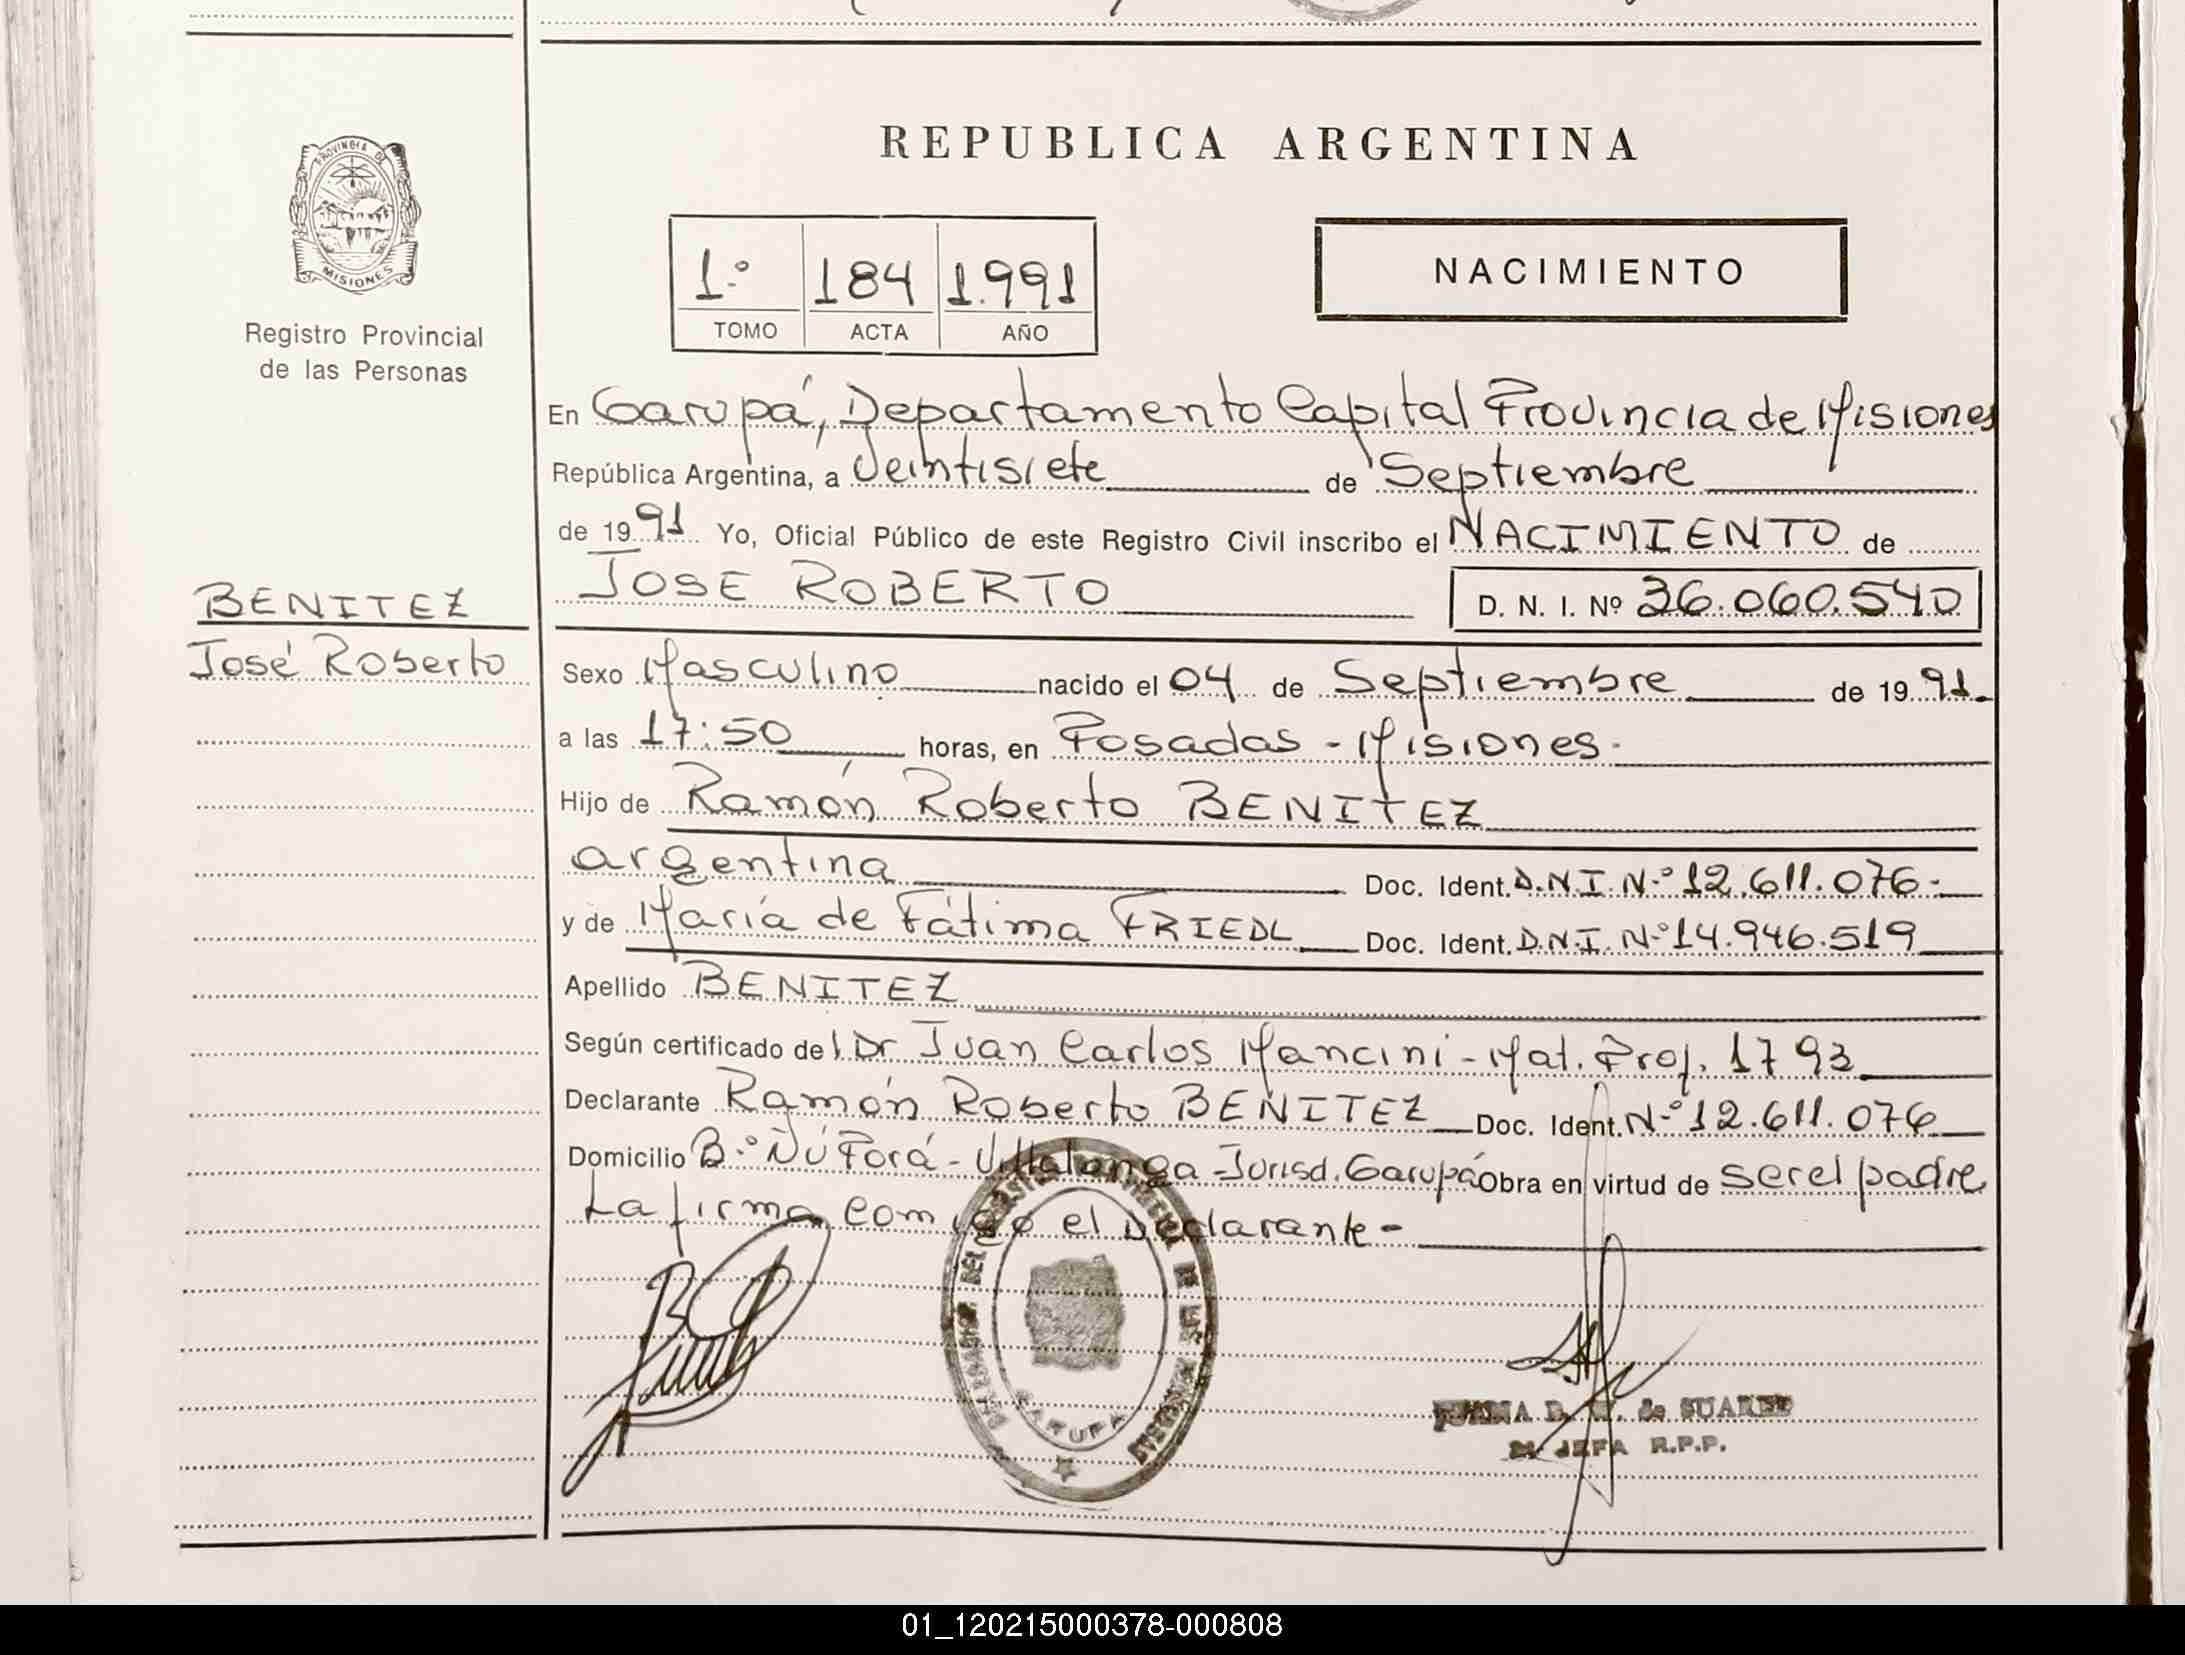 REPUBLICA ARGENTINA
PROVINCIA DE
MISIONES
Registro Provincial
de las Personas
1.º 184 1.991
TOMO ACTA AÑO
NACIMIENTO
En Garupá, Departamento Capital Provincia de Misiones
República Argentina, a Veintisiete de Septiembre
de 1991 Yo, Oficial Público de este Registro Civil inscribo el NACIMIENTO de
JOSE ROBERTO D. N. I. Nº 36.060.540
BENITEZ
José Roberto
Sexo Masculino nacido el 04 de Septiembre de 1991.
a las 17:50 horas, en Posadas - Misiones.
Hijo de Ramón Roberto BENITEZ
argentina Doc. Ident. D.N.I. N.º 12.611.076.
y de María de Fátima FRIEDL Doc. Ident. D.N.I. N.º 14.946.519
Apellido BENITEZ
Según certificado del Dr Juan Carlos Mancini - Mat. Prof. 1793
Declarante Ramón Roberto BENITEZ Doc. Ident. N.º 12.611.076
Domicilio B.º Ñú Porá - Villalonga - Jurisd. Garupá Obra en virtud de ser el padre
La firma conmigo el Declarante -
GARUPA
de SUAREZ
JEFA R.P.P.
01_120215000378-000808